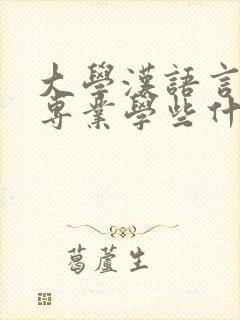 大學漢語言
專業學些什
葛蘆生